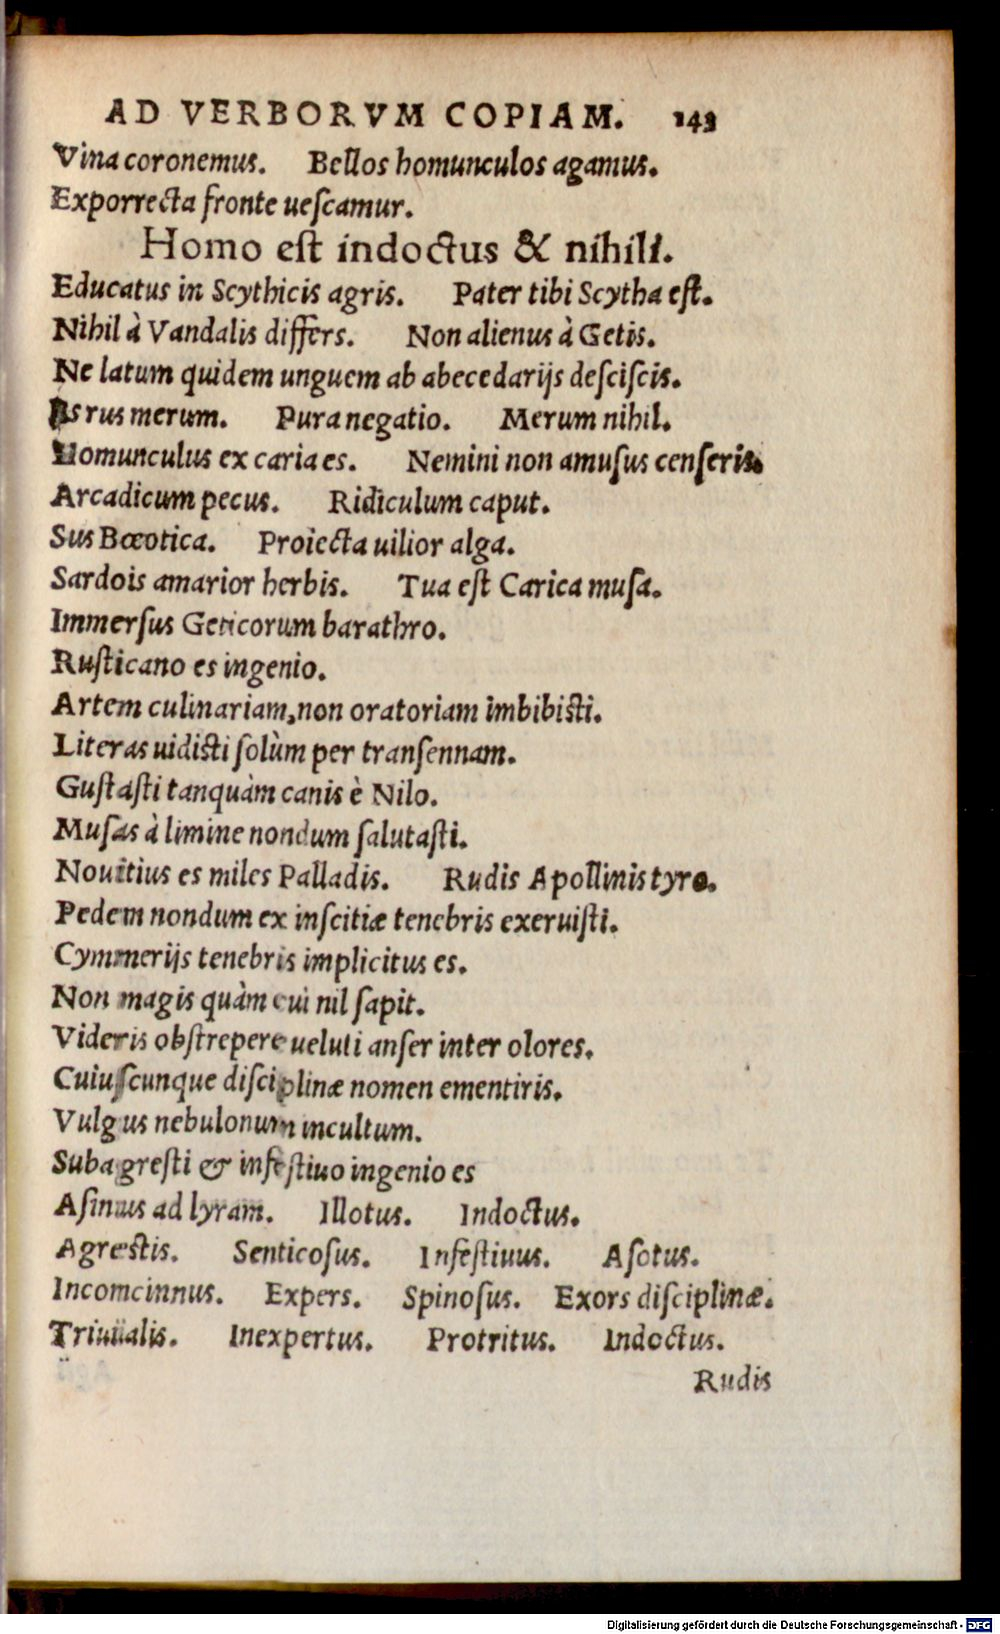 AD VERBORVM COPIAM. 143
Vina coronemus. Bellos homunculos agamus.
Exporrecta fronte ueſcamur.
Homo eſt indoctus & nihili.
Educatus in Scythicis agris. Pater tibi Scytha eſt.
Nihil à Vandalis differs. Non alienus à Getis.
Ne latum quidem unguem ab abecedarijs deſciſcis.
Es rus merum. Pura negatio. Merum nihil.
Homunculus ex caria es. Nemini non amuſus cenſeris.
Arcadicum pecus. Ridiculum caput.
Sus Bœotica. Proiecta uilior alga.
Sardois amarior herbis. Tua eſt Carica muſa.
Immerſus Geticorum barathro.
Ruſticano es ingenio.
Artem culinariam, non oratoriam imbibiſti.
Literas uidiſti ſolùm per tranſennam.
Guſtaſti tanquàm canis è Nilo.
Muſas à limine nondum ſalutaſti.
Nouitius es miles Palladis. Rudis Apollinis tyro.
Pedem nondum ex inſcitiæ tenebris exeruiſti.
Cymmerijs tenebris implicitus es.
Non magis quàm cui nil ſapit.
Videris obſtrepere ueluti anſer inter olores.
Cuiuſcunque diſciplinæ nomen ementiris.
Vulgus nebulonum incultum.
Subagreſti & infeſtiuo ingenio es
Aſinus ad lyram. Illotus. Indoctus.
Agreſtis. Senticoſus. Infeſtiuus. Aſotus.
Incomcinnus. Expers. Spinoſus. Exors diſciplinæ.
Triuialis. Inexpertus. Protritus. Indoctus.
Rudis
Digitalisierung gefördert durch die Deutsche Forschungsgemeinschaft - DFG